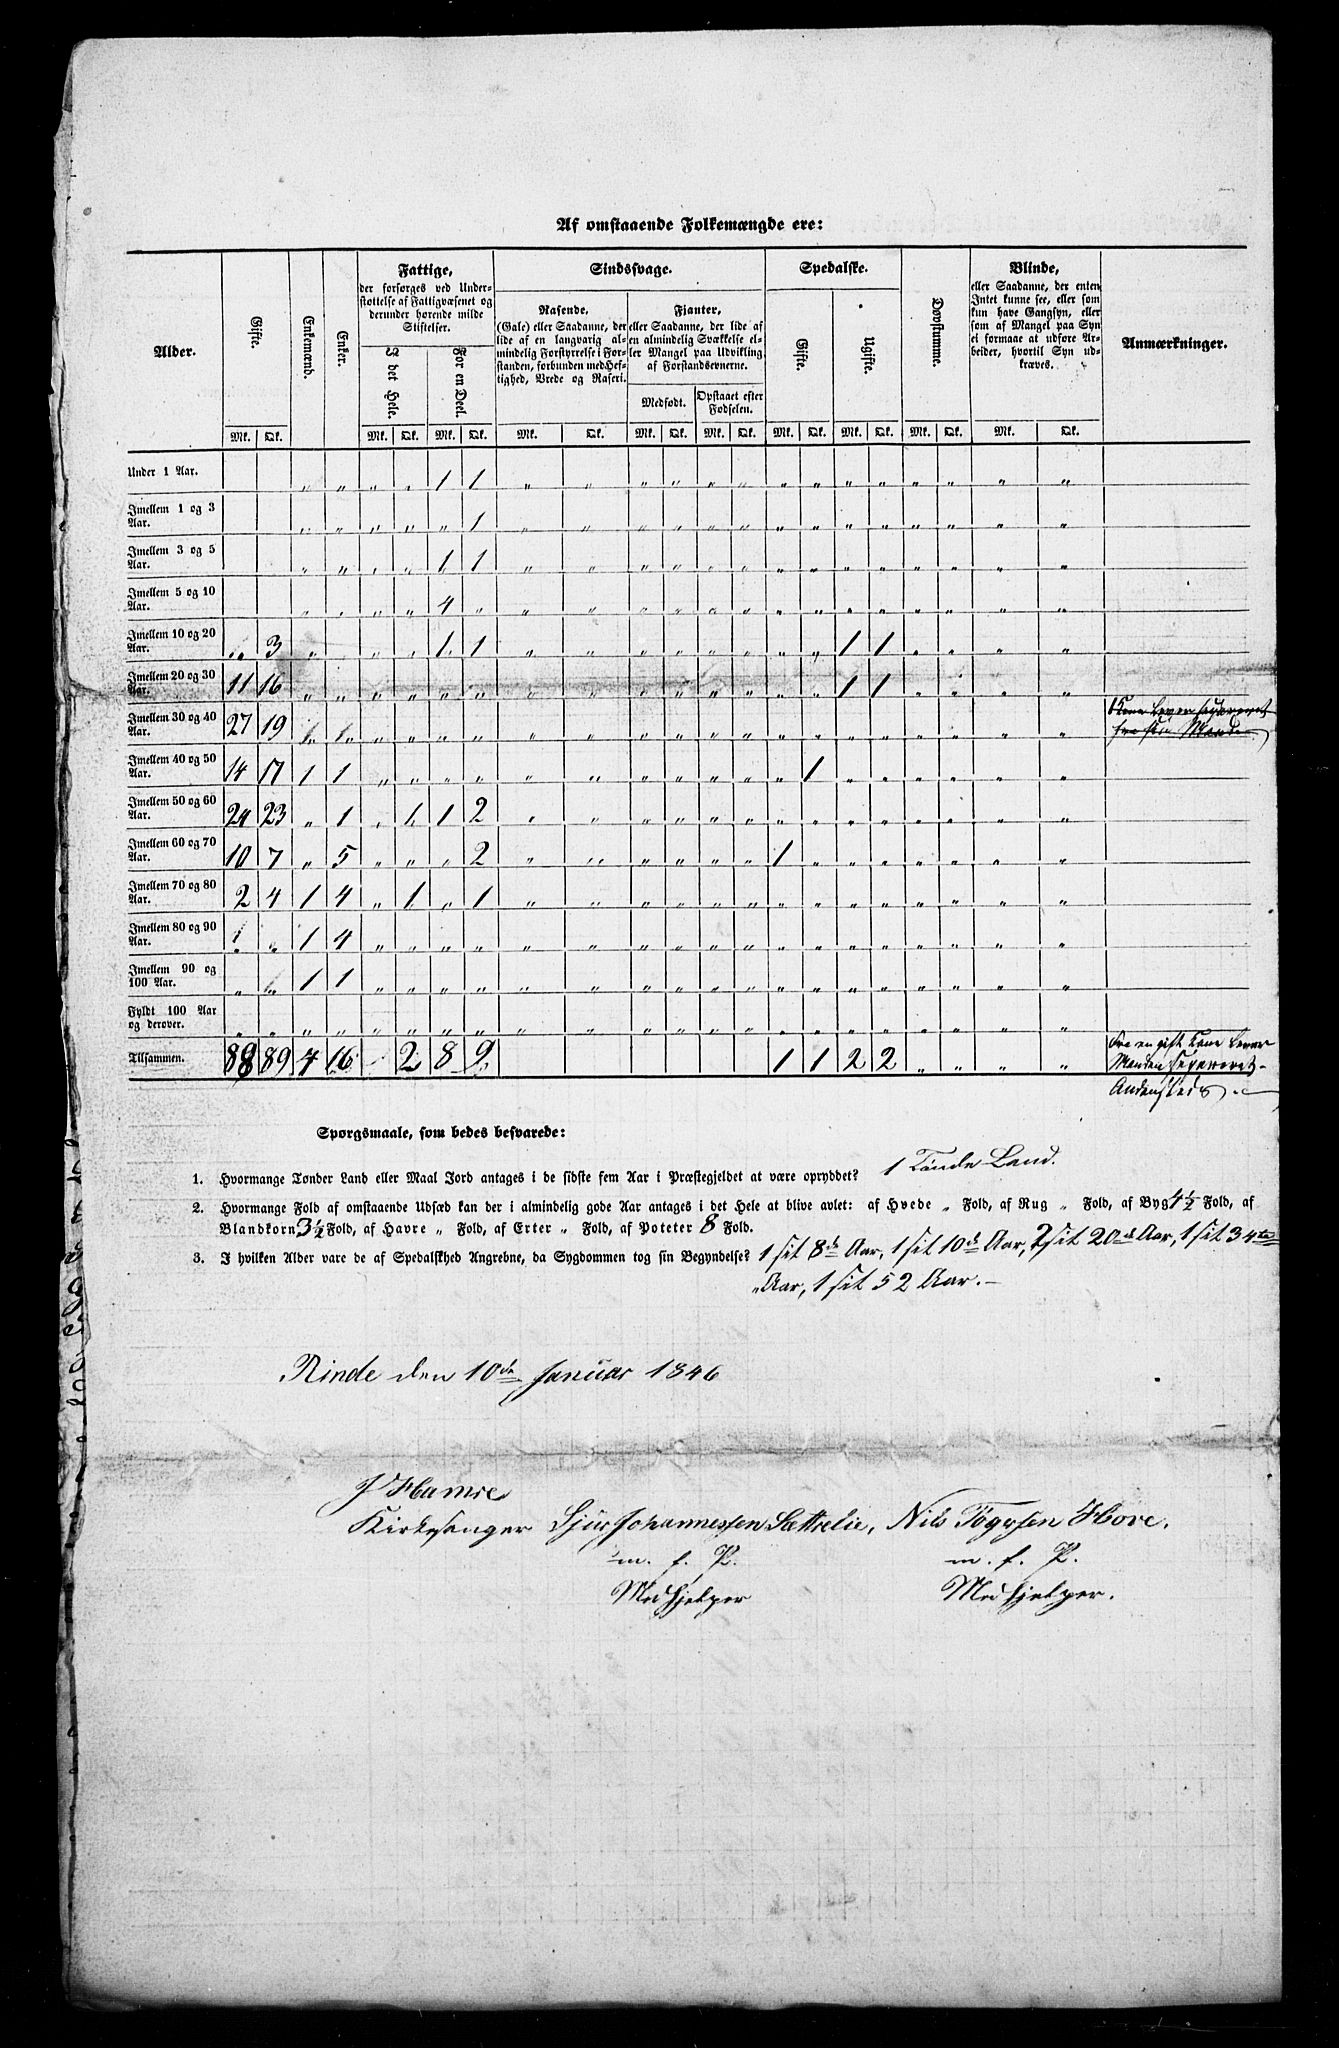 Af omstaaende Folkemængde ere:
Alder. Gifte. Enkemænd. Enker. Fattige, der forsørges ved Understøttelse af Fattigvæsenet og derunder hørende milde Stiftelser. Sindssvage. Spedalske. Døvstumme. Blinde, eller Saadanne, der enten Intet kunne see, eller som kun have Gangsyn, eller som af Mangel paa Syn ei formaae at udføre Arbeider, hvortil Syn udkræves. Anmærkninger.
I det Hele. For en Deel. Rasende, (Gale) eller Saadanne, der lide af en langvarig almindelig Forstyrrelse i Forstanden, forbunden med Heftighed, Vrede og Raseri. Fjanter, eller Saadanne, der lide af en almindelig Svækkelse eller Mangel paa Udvikling af Forstandsevnerne. Gifte. Ugifte.
Medfødt. Opstaaet efter Fødselen.
Mk. Qk. Mk. Qk. Mk. Qk. Mk. Qk. Mk. Qk. Mk. Qk. Mk. Qk. Mk. Qk. Mk. Qk. Mk. Qk.
Under 1 Aar. „ „ „ „ 1 1 „ „ „ „ „ „ „ „ „ „ „ „ „ „
Imellem 1 og 3 Aar. „ „ „ „ „ 1 „ „ „ „ „ „ „ „ „ „ „ „ „ „
Imellem 3 og 5 Aar. „ „ „ „ 1 1 „ „ „ „ „ „ „ „ „ „ „ „ „ „
Imellem 5 og 10 Aar. „ „ „ „ 4 „ „ „ „ „ „ „ „ „ „ „ „ „ „ „
Imellem 10 og 20 Aar. „ 3 „ „ „ „ 1 1 „ „ „ „ „ „ „ „ 1 1 „ „ „ „
Imellem 20 og 30 Aar. 11 16 „ „ „ „ „ „ „ „ „ „ „ „ „ „ 1 1 „ „ „ „
Imellem 30 og 40 Aar. 27 19 „ „ „ „ „ „ „ „ „ „ „ „ „ „ „ „ „ „ 1 Kone lever separeret
fra sin Mand
Imellem 40 og 50 Aar. 14 17 1 1 „ „ „ „ „ „ „ „ „ „ „ 1 „ „ „ „ „ „
Imellem 50 og 60 Aar. 24 23 „ 1 „ 1 1 2 „ „ „ „ „ „ „ „ „ „ „ „ „ „
Imellem 60 og 70 Aar. 10 7 „ 5 „ „ „ 2 „ „ „ „ „ „ 1 „ „ „ „ „ „ „
Imellem 70 og 80 Aar. 2 4 1 4 „ 1 „ 1 „ „ „ „ „ „ „ „ „ „ „ „ „ „
Imellem 80 og 90 Aar. „ „ 1 4 „ „ „ „ „ „ „ „ „ „ „ „ „ „ „ „ „ „
Imellem 90 og 100 Aar. „ „ 1 1 „ „ „ „ „ „ „ „ „ „ „ „ „ „ „ „ „ „
Fyldt 100 Aar og derover. „ „ „ „ „ „ „ „ „ „ „ „ „ „ „ „ „ „ „ „ „ „
Tilsammen. 88 89 4 16 2 8 9 1 1 2 2 „ „ „ „ Fra en gift Kone lever
Manden separeret
Andensteds.
Spørgsmaale, som bedes besvarede:
1. Hvormange Tønder Land eller Maal Jord antages i de sidste fem Aar i Præstegjeldet at være opryddet? 1 Tønde Land.
2. Hvormange Fold af omstaaende Udsæd kan der i almindelig gode Aar antages i det Hele at blive avlet: af Hvede „ Fold, af Rug „ Fold, af Byg 4½ Fold, af
Blandkorn 3½ Fold, af Havre „ Fold, af Erter „ Fold, af Poteter 8 Fold.
3. I hvilken Alder vare de af Spedalskhed Angrebne, da Sygdommen tog sin Begyndelse? 1 sit 8de Aar, 1 sit 10de Aar, 2 sit 20de Aar, 1 sit 34te
Aar, 1 sit 52 Aar.
Rinde den 10de Januar 1846
J Hamre
Kirkesanger Sjur Johannessen Sættrelie, Nils Tøgersen Hove.
m. f. P. m. f. P.
Medhjelper Medhjelper.